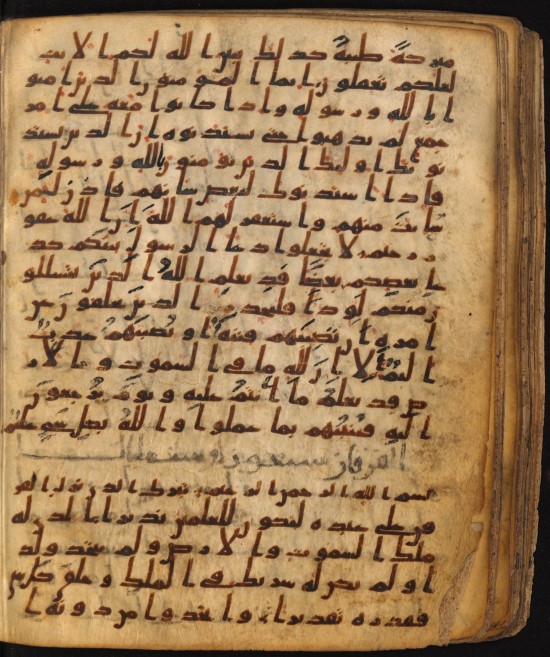 مبركة طيبة كذلك يبين الله لكم الايت
لعلكم تعقلون انما المومنون الذين امنو
ا بالله ورسوله واذا كانوا معه على امر
جمع لم يذهبوا حتى يستذنوه ان الذين يستذ
نونك اوليك الذين يومنون بالله ورسوله
فاذا استذنوك لبعض شانهم فاذن لمن
شيت منهم واستغفر لهم الله ان الله غفو
ر رحيم لا تجعلوا دعا الرسول بينكم كد
عا بعضكم بعضا قد يعلم الله الذين يتسللو
ن منكم لواذا فليحذر الذين يخلفون عن
امره ان تصيبهم فتنة او يصيبهم عذاب
اليم الا ان لله ما في السموت والار
ض قد يعلم ما انتم عليه ويوم يرجعون
اليه فينبيهم بما عملوا والله بكل شي عليم
الفرقان سبعون وسبع
بسم الله الرحمن الرحيم تبرك الذي نزل الفر
قن على عبده ليكون للعلمين نذيرا الذي له
ملك السموت والارض ولم يتخذ ولد
ا ولم يكن له شريك في الملك وخلق كل شي
فقدره تقديرا واتخذوا من دونه ا